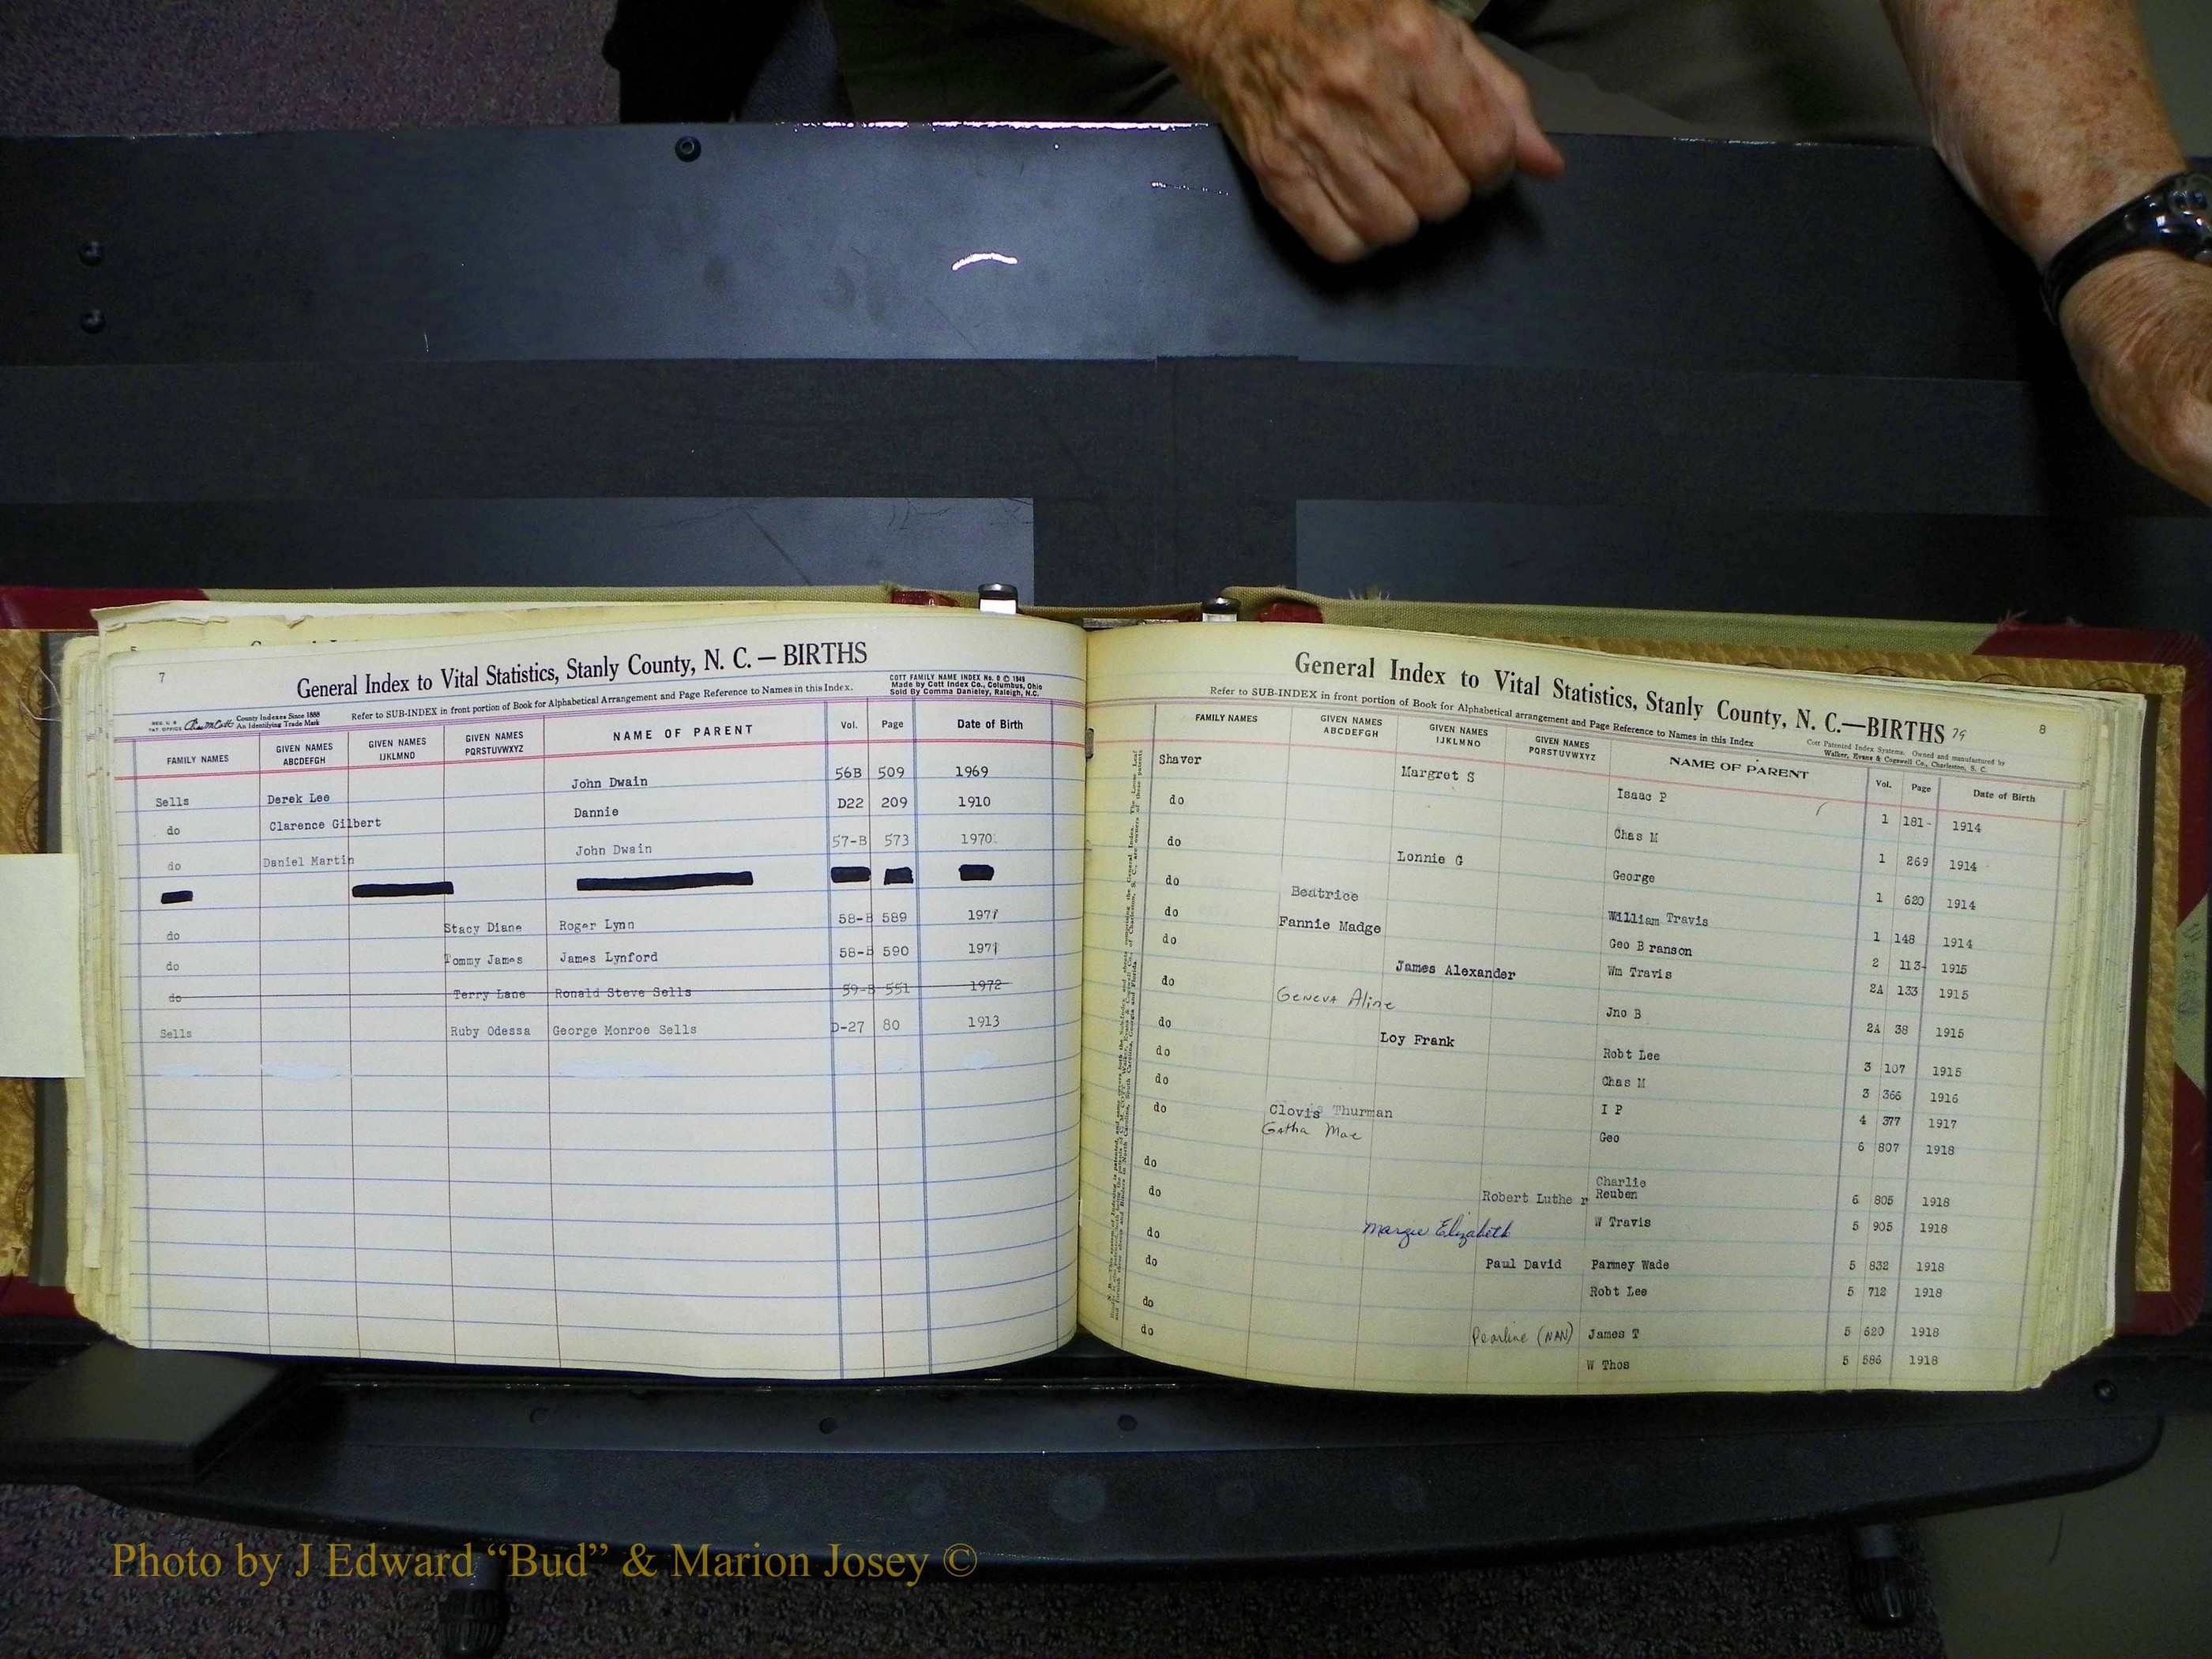 7
General Index to Vital Statistics, Stanly County, N. C. — BIRTHS
COTT FAMILY NAME INDEX No. 8 © 1949
Made by Cott Index Co., Columbus, Ohio
Sold By Comma Danieley, Raleigh, N.C.
County Indexes Since 1888
An Identifying Trade Mark
Refer to SUB-INDEX in front portion of Book for Alphabetical Arrangement and Page Reference to Names in this Index.
FAMILY NAMES GIVEN NAMES ABCDEFGH GIVEN NAMES IJKLMNO GIVEN NAMES PQRSTUVWXYZ NAME OF PARENT Vol. Page Date of Birth
Sells Derek Lee John Dwain 56B 509 1969
do Clarence Gilbert Dannie D22 209 1910
do Daniel Martin John Dwain 57-B 573 1970
do Stacy Diane Roger Lynn 58-B 589 1971
do Tommy James James Lynford 58-B 590 1971
do Terry Lane Ronald Steve Sells 59-B 551 1972
Sells Ruby Odessa George Monroe Sells D-27 80 1913
General Index to Vital Statistics, Stanly County, N. C.—BIRTHS 79
8
Refer to SUB-INDEX in front portion of Book for Alphabetical arrangement and Page Reference to Names in this Index
Cott Patented Index Systems. Owned and manufactured by
Walker, Evans & Cogswell Co., Charleston, S. C.
FAMILY NAMES GIVEN NAMES ABCDEFGH GIVEN NAMES IJKLMNO GIVEN NAMES PQRSTUVWXYZ NAME OF PARENT Vol. Page Date of Birth
Shaver Margret S Isaac P 1 181- 1914
do Chas M 1 269 1914
do Lonnie G George 1 620 1914
do Beatrice William Travis 1 148 1914
do Fannie Madge Geo Branson 2 113- 1915
do James Alexander Wm Travis 2A 133 1915
do Geneva Aline Jno B 2A 38 1915
do Loy Frank Robt Lee 3 107 1915
do Chas M 3 366 1916
do I P 4 377 1917
do Clovis Thurman Geo 6 807 1918
Gatha Mae
do Charlie Reuben 6 805 1918
do Robert Luther W Travis 5 905 1918
do Margie Elizabeth Parmey Wade 5 832 1918
do Paul David Robt Lee 5 712 1918
do James T 5 620 1918
do Pearline (NAN) W Thos 5 586 1918
Photo by J Edward “Bud” & Marion Josey ©